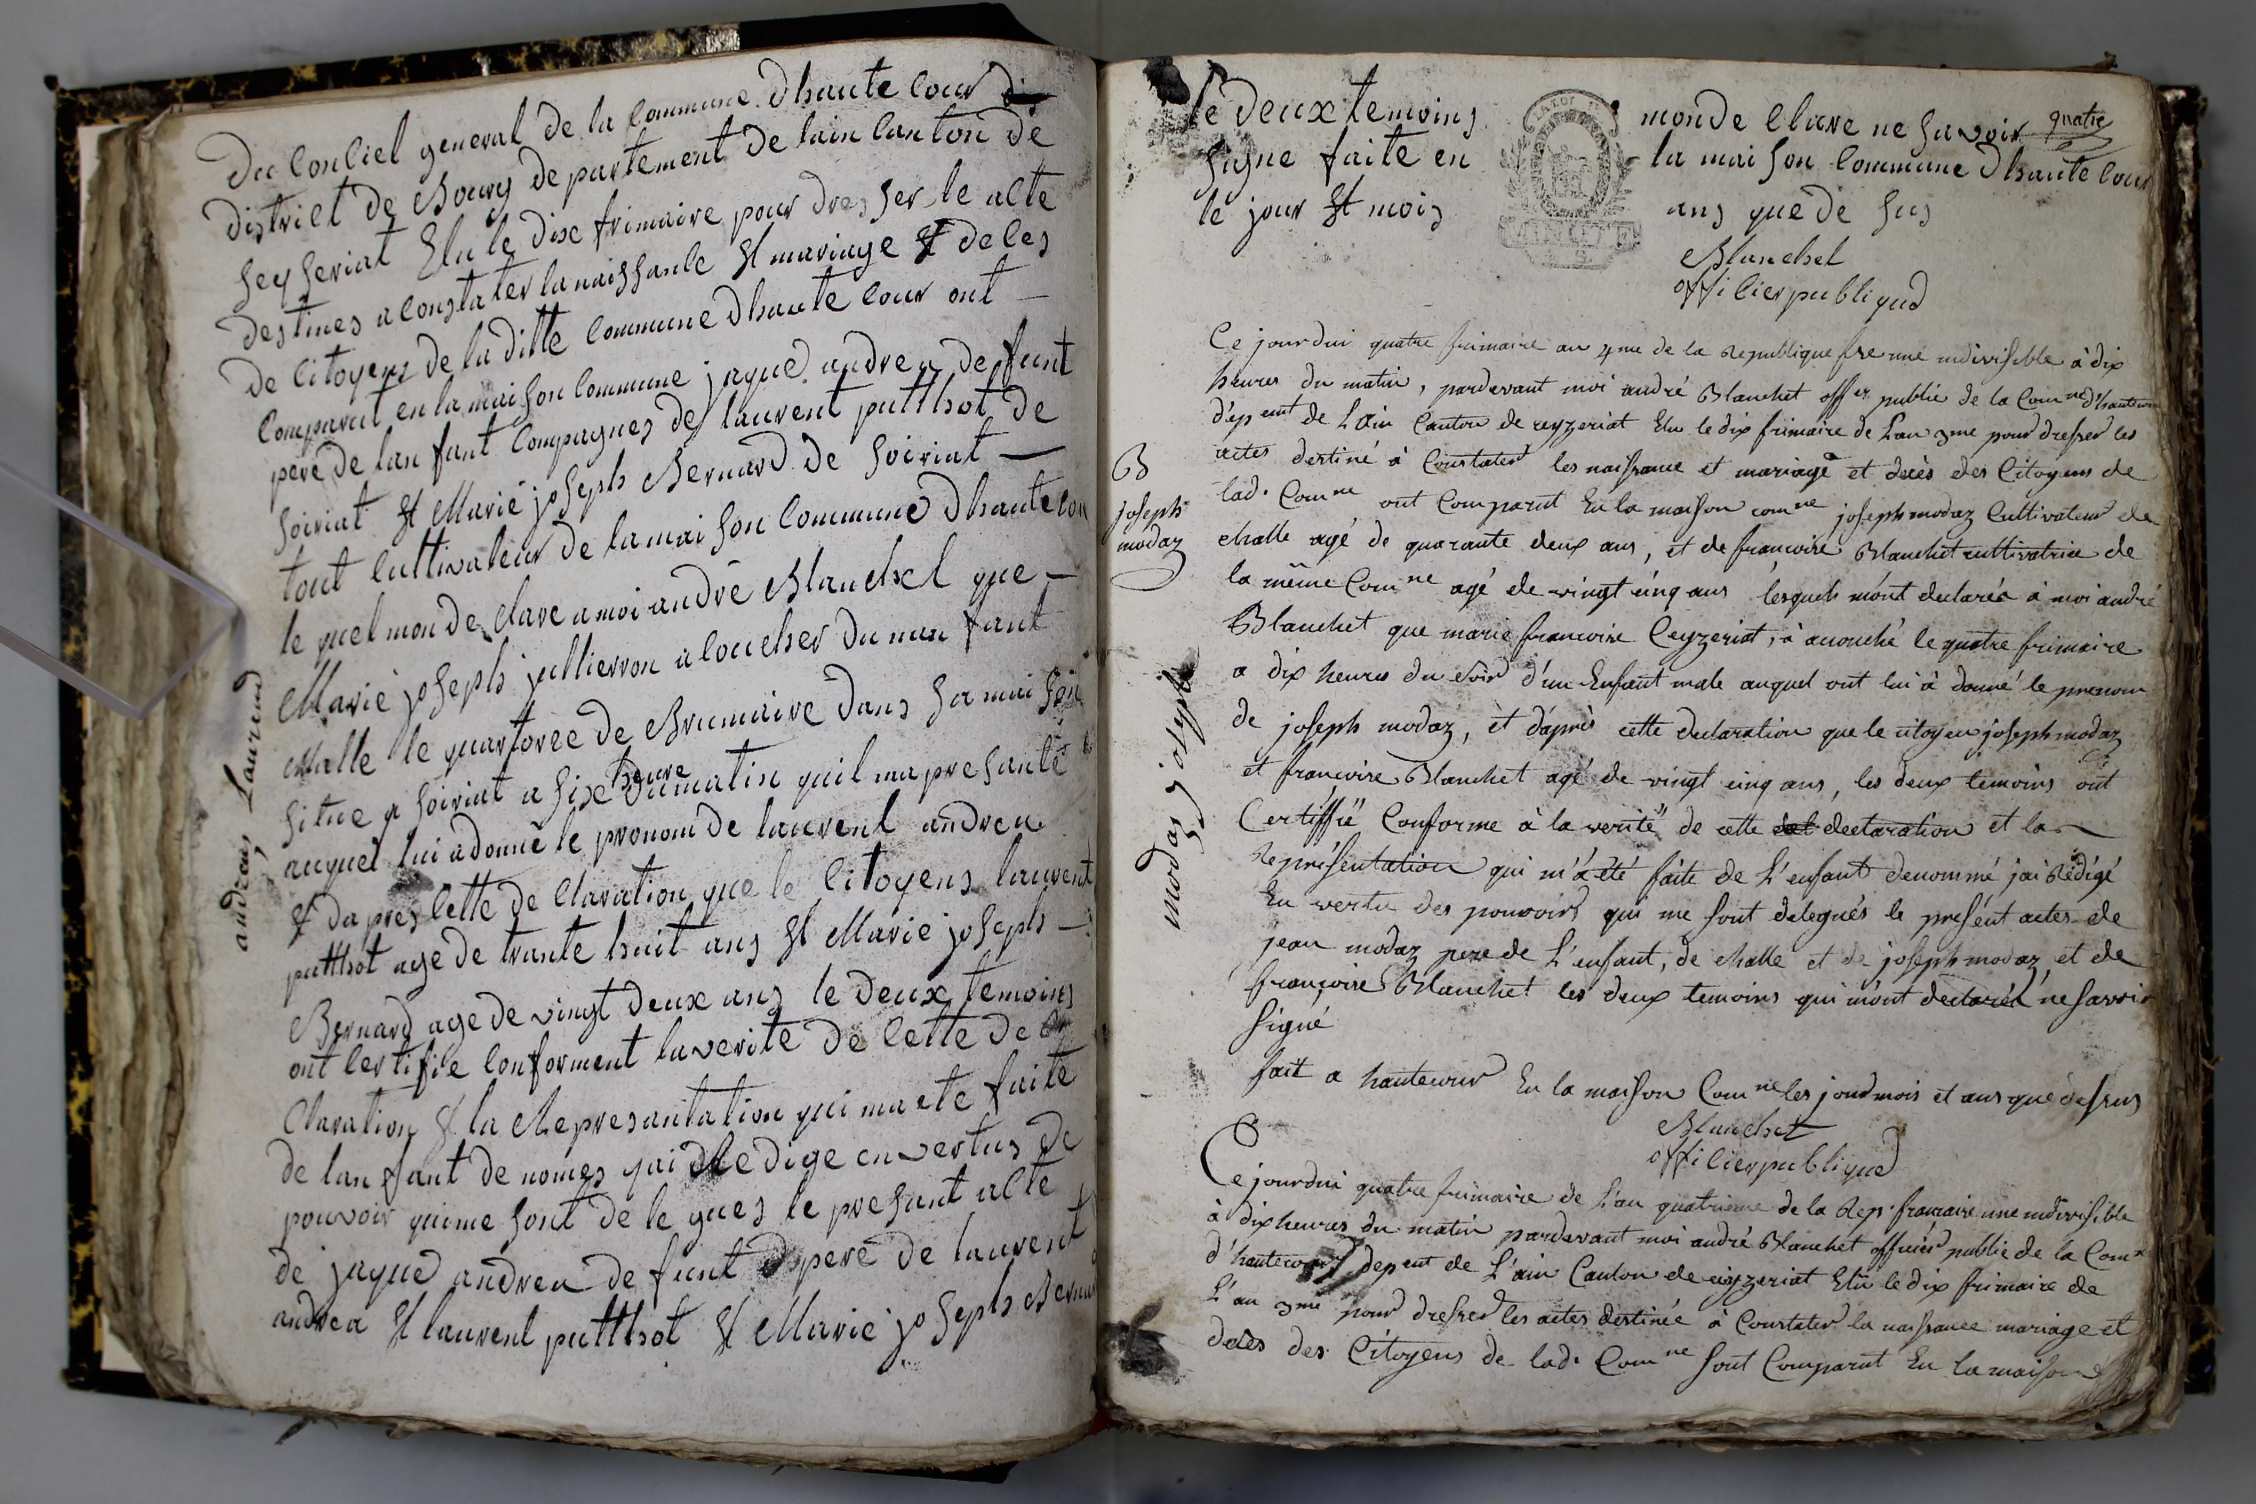 Du Conciel general de la Commune d haute Cour
District de Bourg departement de lain Canton de
Seyseriat Elu le dixe frimaire pour dresser le acte
Destines a Constater la naissance Et mariage Et deces
de Citoyens de la ditte Commune d haute Cour ont
Comparut en la maison Commune jaque andrea defunt
pere de lanfant Compagnes de laurent putthot de
soiriat Et Marie joseph Bernard de soiriat
tout Cultivateur de la maison Commune d haute Cour
le quel mon de Clare a moi andré Blanchet que
Marie joseph jullierron a Coucher du nan fant
Malle le quartorze de Brumaire dans sa maison
situe a soiriat a sixe heure du matin quil ma presanté
auquel lui a donné le pronom de laurent andrea
Et dapres Cette de Claration que le Citoyens laurent
putthot age de trante huit ans Et Marie joseph
Bernard age de vingt deux ans le deux temoins
ont Certifiie Conforment la verite de Cette de
Claration Et la Represantation qui ma ete faite
de lan fant de nomes jai Redige en vertus de
pouvoir quime sont de le gues le presant acte
de jaque andrea defunt pere de laurent
andrea Et laurent putthot Et Marie joseph Bernard
andreas Laurend
quatre
le deux temoins monde Clare ne savoir
signe faite en la maison Commune d haute Cour
le jour Et mois ans que de sus
LA LOI
Blanchet
officier publique
Ce jourdui quatre frimaire an 4me de la Republique fse une indivisible à dix
heures du matin, pardevant moi andré Blanchet offer public de la Comne d'hautecour
dépent de L'Ain Canton de ceyzeriat Elu le dix frimaire de L'an 3me pour dresser les
actes destiné à Constater les naissance et mariage et decès des Citoyens de
lad. Comne ont Comparut En la maison comne joseph modaz Cultivateur de
challe agé de quarante deux ans, et de francoise Blanchet cultivatrice de
la même Comne agé de vingt cinq ans lesquels m'ont declarés à moi andré
Blanchet que marie francoise Ceyzeriat, à acouché le quatre frimaire
a dix heures du soir d'un Enfant male auquel ont lui à donné le prenom
de joseph modaz, èt d'après cette declaration que le citoyen joseph modaz
et francoise Blanchet agé de vingt cinq ans, les deux temoins ont
Certiffié Conforme à la verité de cette declaration et la
representation qui m'a été faite de L'enfant denommé jai Rédigé
En vertu des pouvoirs qui me sont delegués le présent actes de
jean modaz pere de L'enfant, de challe et de joseph modaz, et de
françoise Blanchet les deux temoins qui m'ont declarés ne savoir
signé
fait a hautecour En la maison Comne les jour mois et ans que dessus
Blanchet
officier publique
B
joseph
modaz
modas joseph
Ce jourdui quatre frimaire de L'an quatrieme de la Rep. francaise une indivisible
à dix heures du matin pardevant moi andré Blanchet officier public de la Comne
d'hautecour depent de L'ain Canton de ceyzeriat Elu le dix frimaire de
L'an 3me pour dresser les actes destinée à Constater la naissance mariage et
decès des Citoyens de lad. Comne sont Comparut En la maison